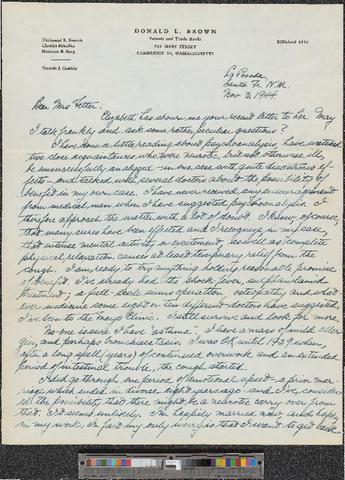 DONALD L. BROWN
Patents and Trade Marks
795 MAIN STREET
CAMBRIDGE 39, MASSACHUSETTS
Nathaniel R. French
Maurice S. Berg
Francis J. Cassidy
KIRkland
La Posada
Santa Fe N.M.
Nov. 3, 1944.
Dear Mrs.
Elizabeth has shown me your recent letter to her. May
I talk frankly and ask some rather peculiar questions?
I have done a little reading about psychoanalysis, have watched
two close acquaintances who were neurotic, but not otherwise ill,
be unsuccessfully analyzed - in one case with quite disastrous ef-
fects - and talked with several doctors about the possibility of
benefit in my own case. I have never received any encouragement
from medical men when I have suggested psychoanalysis. I
therefore approach the matter with a lot of doubt. I know, of course,
that many cures have been effected and I recognize in my case,
that intense mental activity or excitement, as well as complete
physical relaxation causes at least temporary relief from the
cough. I am ready to try anything holding reasonable promise
of benefit. I've already had the shock fever, sulphanilamide
treatment, a full scale sinus operation, osteopath, and what-
ever medicine some eight or ten different doctors have suggested.
I've been to the Mayo Clinic. I still survive and look for more.
No one is sure I have "asthma". I have a mass of mild aller-
gies, and perhaps bronchiectasis. I was OK until 1939 when,
after a long spell (years) of continued overwork and an extended
period of intestinal trouble, the cough started.
I did go through one period of emotional upset - a prior mar-
riage which ended in divorce eight years ago - and I've consider-
ed the possibility that there might be a neurotic carry-over from
that. It seems unlikely. I'm happily married now and happy
in my work. In fact my only worry is that I want to get back